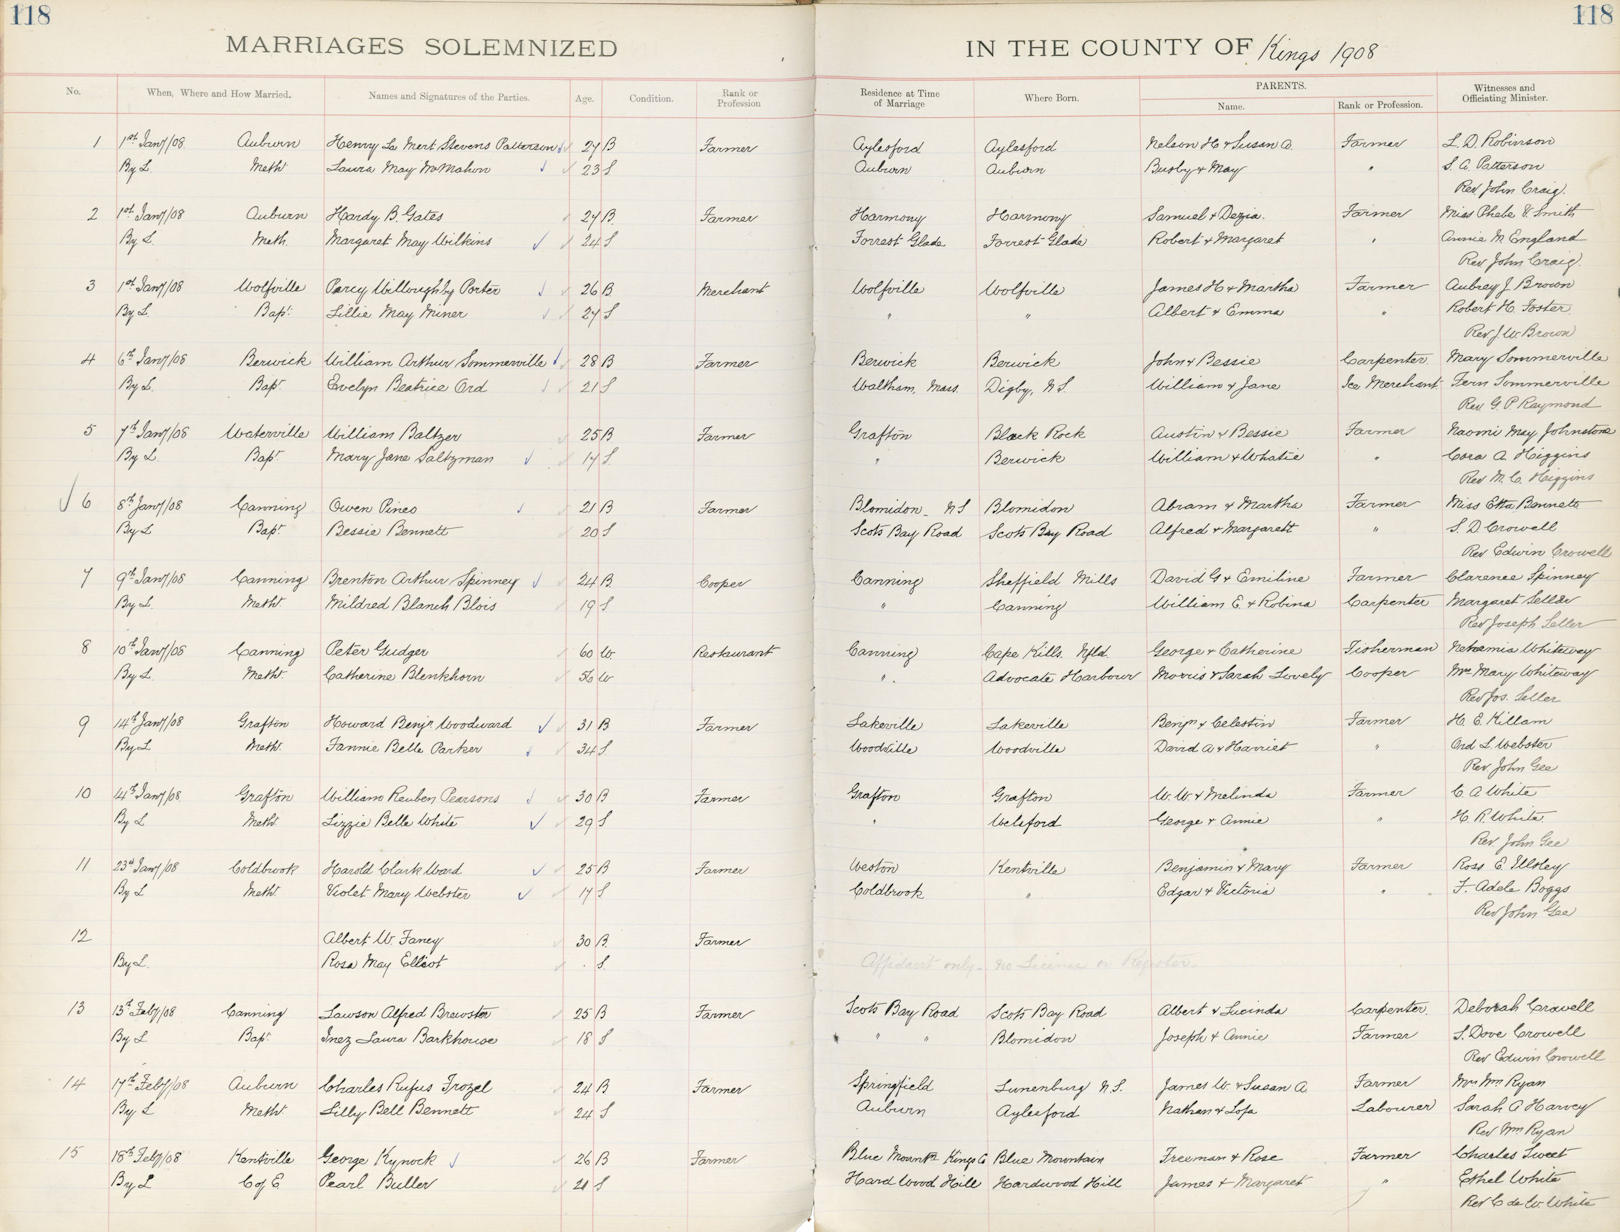 118
118
MARRIAGES SOLEMNIZED
IN THE COUNTY OF Kings 1908
No. When, Where and How Married. Names and Signatures of the Parties. Age. Condition. Rank or Profession Residence at Time of Marriage Where Born. PARENTS. Name. Rank or Profession. Witnesses and Officiating Minister.
1 1st Jany/08 Auburn Henry La Mert Stevens Patterson 27 B Farmer Aylesford Aylesford Nelson H & Susan A. Farmer L. D. Robinson
By L. Meth Laura May McMahon 23 S Auburn Auburn Busby & May " S. A. Patterson
Rev John Craig.
2 1st Jany/08 Auburn Hardy B. Gates 27 B. Farmer Harmony Harmony Samuel & Dezia. Farmer Miss Phebe V. Smith
By L. Meth. Margaret May Wilkins 24 S Forrest Glade Forrest Glade Robert & Margaret " Annie M. England
Rev John Craig.
3 1st Jany/08 Wolfville Percy Willoughby Porter 26 B Merchant Wolfville Wolfville James H & Martha Farmer Aubrey J Brown
By L. Bapt. Lillie May Miner 27 S " " Albert & Emma " Robert H. Foster
Rev J W Brown
4 6th Jany/08 Berwick William Arthur Sommerville 28 B Farmer Berwick Berwick John & Bessie Carpenter Mary Sommerville
By L Bapt Evelyn Beatrice Ord 21 S Waltham, Mass. Digby, N.S. William & Jane Ice Merchant Fern Sommerville
Rev G. P Raymond
5 7th Jany/08 Waterville William Baltzer 25 B Farmer Grafton Black Rock Austin & Bessie Farmer Naomi May Johnstone
By L Bapt. Mary Jane Saltzman 17 S. " Berwick William & Whatie " Cora A Higgins
Rev M. C. Higgins
6 8th Jany/08 Canning Owen Pineo 21 B Farmer Blomidon N S Blomidon Abram & Martha Farmer Miss Etta Bennett
By L Bapt. Bessie Bennett 20 S Scots Bay Road Scots Bay Road Alfred & Margarett " S. D Crowell
Rev Edwin Crowell
7 9th Jany/08 Canning Brenton Arthur Spinney 24 B. Cooper Canning Sheffield Mills David G & Emiline Farmer Clarence Spinney
By L. Meth. Mildred Blanch Blois 19 S " Canning William E. & Robina Carpenter Margaret Seller
Rev Joseph Seller
8 10th Jany/08 Canning Peter Gudger 60 W. Restaurant Canning Cape Kills. Nfld. George & Catherine Fisherman Nehamia Whiteway
By L. Meth. Catherine Blenkhorn 56 W ". Advocate Harbour Morris & Sarah Lovely Cooper Mrs Mary Whiteway
Rev Jos. Seller
9 14th Jany/08 Grafton Howard Benjn Woodward 31 B Farmer Lakeville Lakeville Benjn & Celestin Farmer H. E. Killam
By L Meth. Fannie Belle Parker 34 S Woodville Woodville David A & Harriet " Ord L. Webster
Rev John Gee
10 14th Jany/08 Grafton William Reuben Pearsons 30 B Farmer Grafton Grafton W. W. & Melinda Farmer C. A White
By L Meth. Lizzie Belle White 29 S " Welsford George & Annie " H R White
Rev John Gee
11 23rd Jany/08 Coldbrook Harold Clark Ward 25 B Farmer Weston Kentville Benjamin & Mary Farmer Ross E. Illsley
By L Meth. Violet Mary Webster 17 S Coldbrook " Edgar & Victoria " F. Adele Boggs
Rev John Gee
12 Albert W. Faney 30 B. Farmer
By L. Rosa May Elliot . S. Affidavit only - no License or Register.
13 13th Feby/08 Canning Lawson Alfred Brewster 25 B Farmer Scots Bay Road Scots Bay Road Albert & Lucinda Carpenter. Deborah Crowell
By L Bapt. Inez Laura Barkhouse 18 S " " Blomidon Joseph & Annie Farmer S. Dove Crowell
Rev Edwin Crowell
14 17th Feby/08 Auburn Charles Rufus Frozel 24 B Farmer Springfield Lunenburg N.S. James W. & Susan A. Farmer Mrs Wm Ryan
By L Meth Lilly Bell Bennett 24 S Auburn Aylesford Nathan & Lofa Labourer Sarah A Harvey
Rev Wm Ryan
15 18th Feby/08 Kentville George Kynock 26 B Farmer Blue Mountn Kings Co Blue Mountain Freeman & Rose Farmer Charles Sweet
By L C of E Pearl Butler 21 S Hard Wood Hill Hardwood Hill James & Margaret " Ethel White
Rev C de W. White